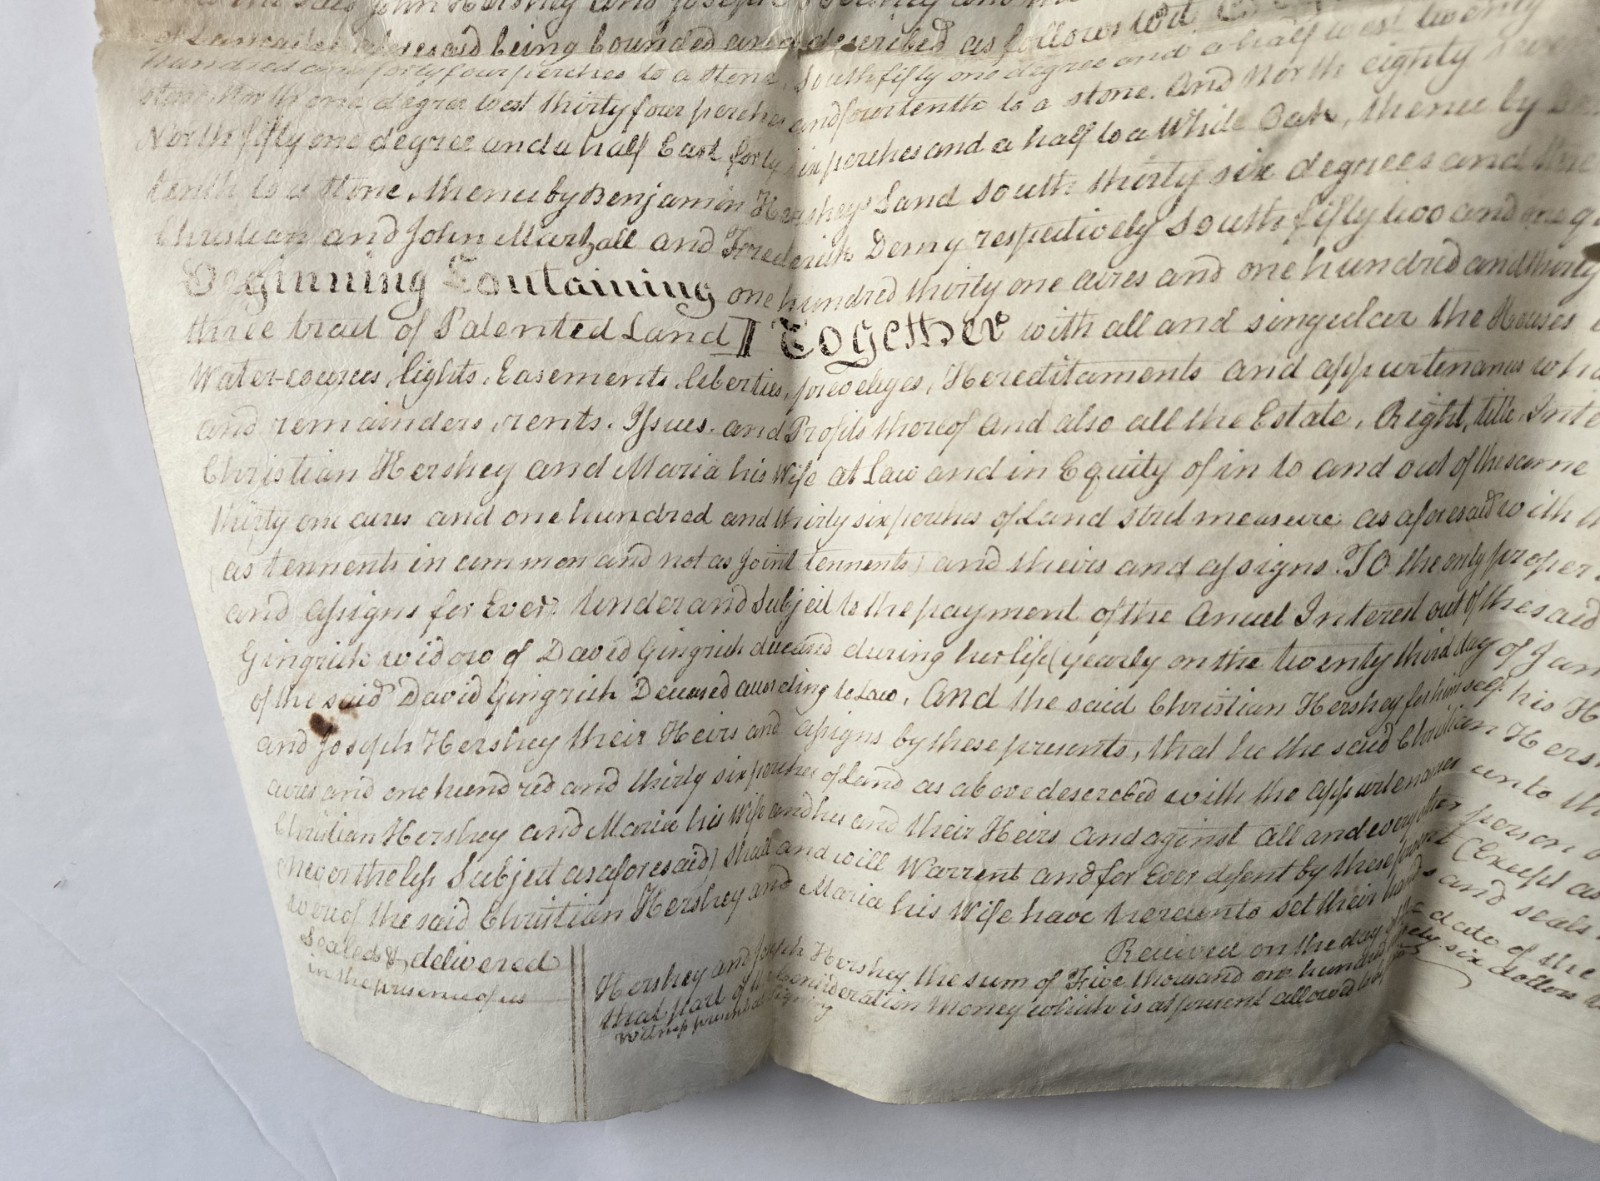 the said John Hershey and Joseph Hershey
of Lancaster aforesaid being bounded and described as follows (to wit)
hundred and forty four perches to a stone, South fifty one degree and a half west twenty
stone, North one degree west thirty four perches and four tenth to a stone. And North eighty
North fifty one degree and a half East forty six perches and a half to a White Oak, thence by
tenth to a stone, thence by Benjamin Hershey's Land South thirty six degrees and
Christian and John Martzall and Frederick Demy respectively South fifty two and one
Beginning Containing one hundred thirty one acres and one hundred and thirty
three tract of Patented Land Together with all and singular the Houses
Water-courses, lights, Easements, liberties, priveleges, Hereditaments and appurtenances
and remainders, rents, Issues, and Profits thereof And also all the Estate, Right, title, Inte
Christian Hershey and Maria his Wife at Law and in Equity of in to and out of the same
thirty one acres and one hundred and thirty six perches of Land strict measure, as aforesaid with
(as tennents in common and not as Joint tennents) and theirs and assigns. To the only proper
and assigns for Ever. Under and Subject to the payment of the Anuel Interest out of the said
Gingrich widow of David Gingrich during her life (yearly on the twenty third day of Jan
of the said David Gingrich Deceased according to Law, And the said Christian Hershey for himself his H
and Joseph Hershey their Heirs and Assigns by these presents, that he the said Christian Hers
acres and one hundred and thirty six perches of Land as above described with the appurtenances unto th
Christian Hershey and Maria his Wife and his and their Heirs and against all and every other person
nevertheless Subject as aforesaid) Shall and will Warrent and for Ever defent by these present (Except as
wereof the said Christian Hershey and Maria his Wife have hereunto set their hands and seals
Sealed & delivered
in the presence of us
Received on the day date of the
Hershey and Joseph Hershey the sum of Five thousand one hundred six dollars
that part of the consideration Money which is at present allowed
Witness present at signing